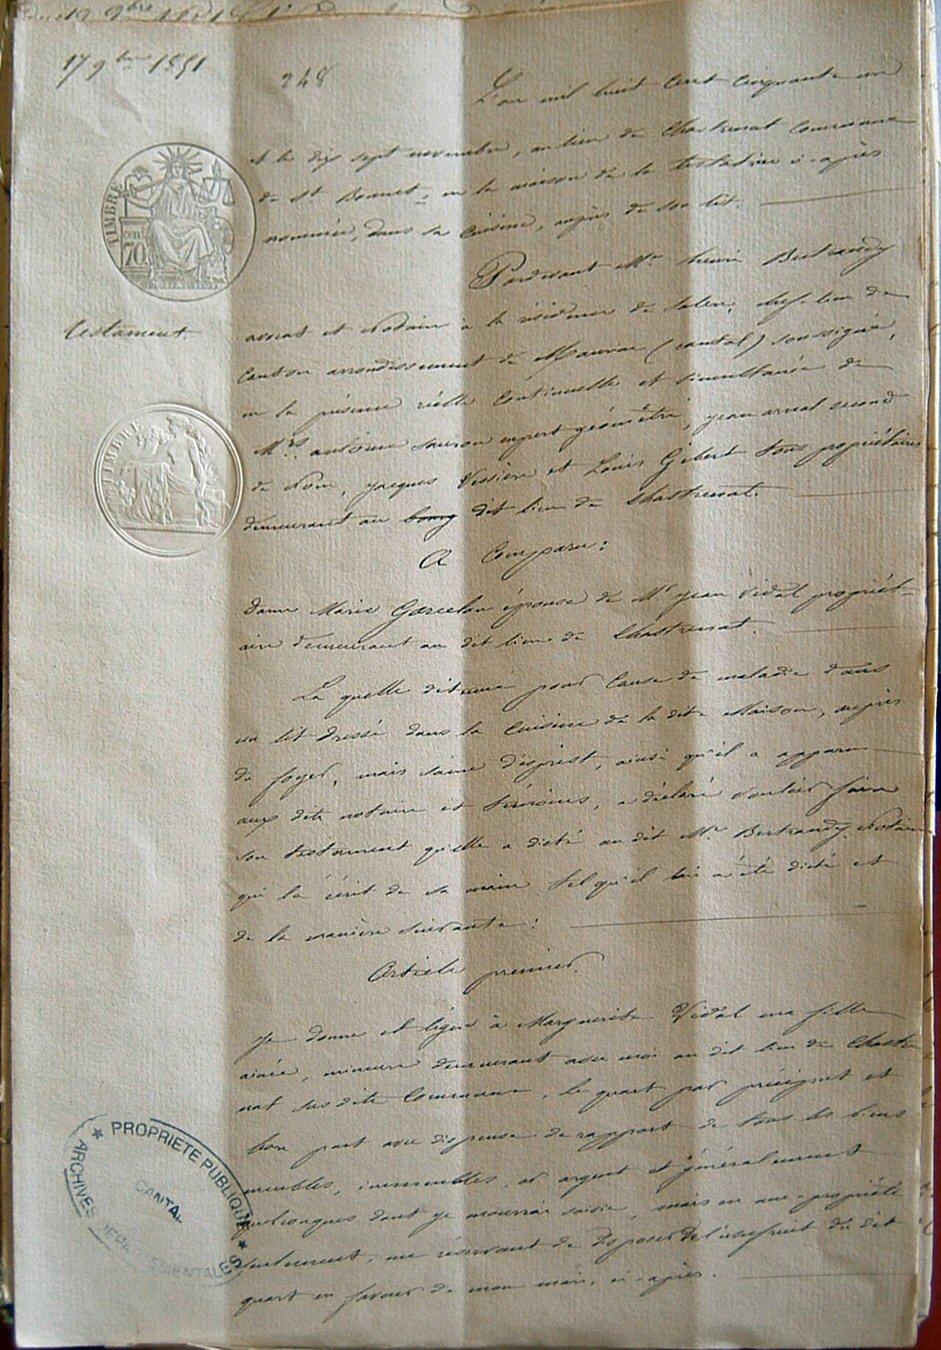 17 9bre 1851
248
L'an mil huit cent cinquante un
et le dix sept novembre, au lieu de Chastrenat commune
de St Bonnet, en la maison de la testatrice ci-après
nommée, dans sa cuisine, auprès de son lit.
Pardevant Me henri Bertrandy
avocat et Notaire à la résidence de Salers, chef-lieu de
canton arrondissement de Mauriac (cantal) soussigné,
en la présence réelle continuelle et simultanée de
Mrs antoine expert géomètre, jean second
de Nom, jacques Vessière et Louis Gibert tous propriétaires
demeurant au bourg dit lieu de Chastrenat.
A Comparu:
dame Marie Garcelon épouse de Mr jean Vidal propriét-
aire demeurant au dit lieu de Chastrenat.
La quelle détenue pour cause de maladie dans
un lit dressé dans la cuisine de la dite Maison, auprès
du foyer, mais saine d'esprit, ainsi qu'il a apparu
aux dits notaire et témoins, a déclaré vouloir faire
son testament qu'elle a dicté au dit Me Bertrandy Notaire
qui l'a écrit de sa main tel qu'il lui a été dicté et
de la manière suivante:
Article premier.
Je donne et lègue à Marguerite Vidal ma fille
ainée, mineure demeurant avec moi au dit lieu de Chastre
nat sus dite Commune, le quart par préciput et
hors part avec dispense de rapport de tous les biens
meubles, immeubles, or argent et généralement
quelconques dont je mourrai saisie, mais en nue-propriété
seulement, me réservant de disposer de l'usufruit du dit
quart en faveur de mon mari, ci-après.
testament.
TIMBRE
70
TIMBRE
PROPRIETE PUBLIQUE
CANTAL
ARCHIVES DEPARTEMENTALES